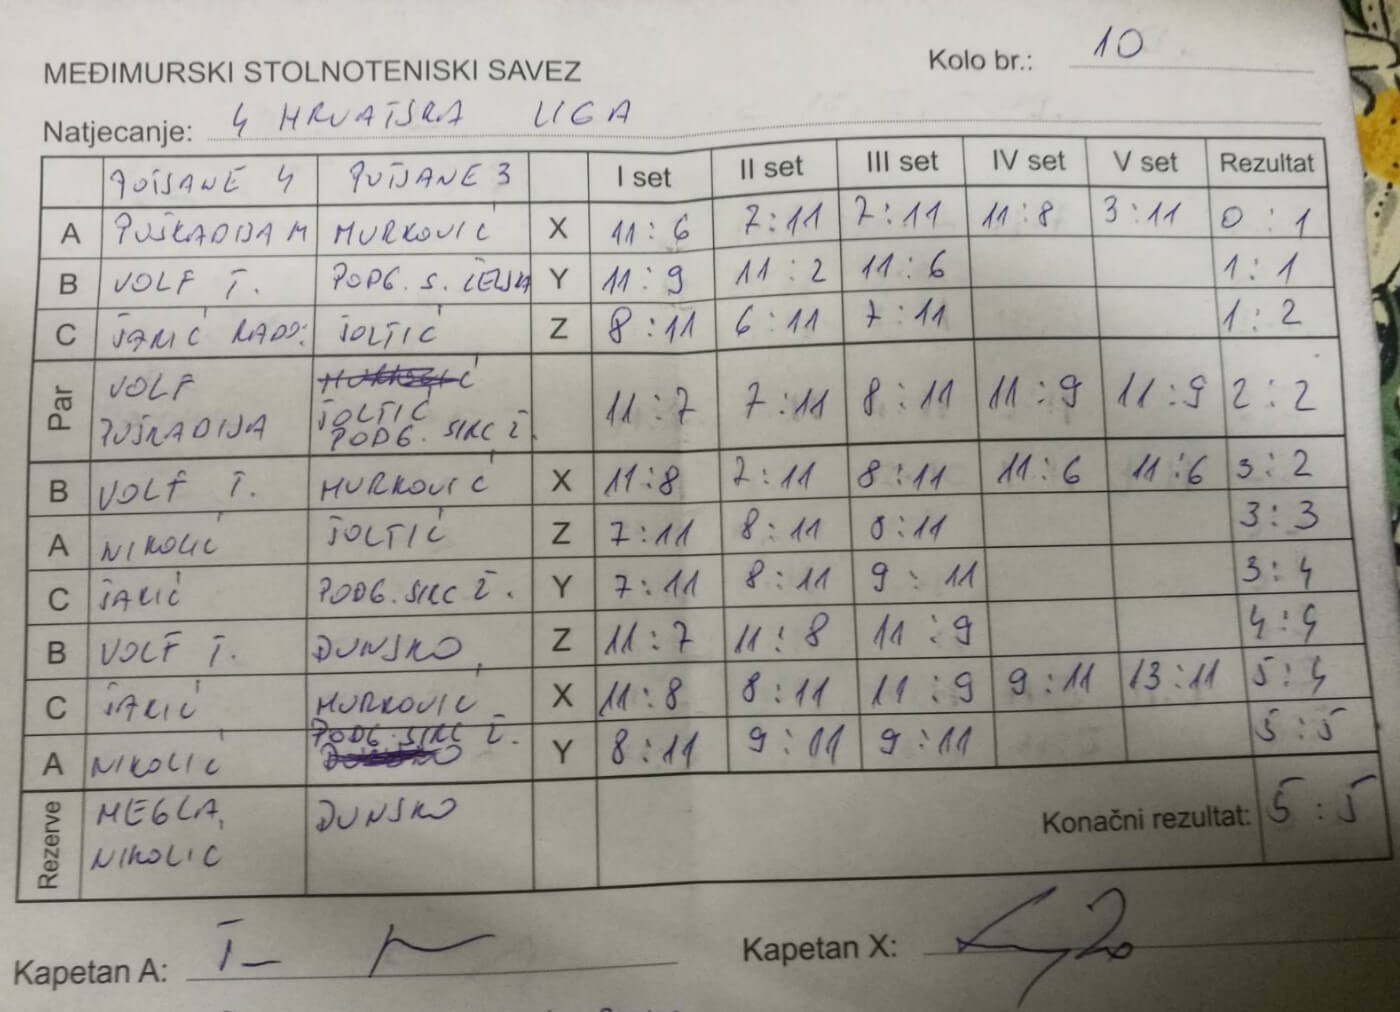 MEĐIMURSKI STOLNOTENISKI SAVEZ
Kolo br.: 10
Natjecanje: 4 HRVATSKA LIGA
PUŠĆANE 4 PUŠĆANE 3 I set II set III set IV set V set Rezultat
A PUŠKADIJA M MURKOVIĆ X 11:6 7:11 7:11 11:8 3:11 0:1
B VOLF T. PODG. S. ŽELJKA Y 11:9 11:2 11:6 1:1
C ŠARIĆ RADO: ŠOLTIĆ Z 8:11 6:11 7:11 1:2
Par VOLF PUŠKADIJA ŠOLTIĆ PODG. SIRC Ž. 11:7 7:11 8:11 11:9 11:9 2:2
B VOLF T. MURKOVIĆ X 11:8 7:11 8:11 11:6 11:6 3:2
A NIKOLIĆ ŠOLTIĆ Z 7:11 8:11 8:11 3:3
C ŠARIĆ PODG. SIRC Ž. Y 7:11 8:11 9:11 3:4
B VOLF T. DUNSKO Z 11:7 11:8 11:9 4:4
C ŠARIĆ MURKOVIĆ X 11:8 8:11 11:9 9:11 13:11 5:4
A NIKOLIĆ PODG. SIRC Ž. Y 8:11 9:11 9:11 5:5
Rezerve MEGLA, NIKOLIĆ DUNSKO Konačni rezultat: 5:5
Kapetan A:
Kapetan X: